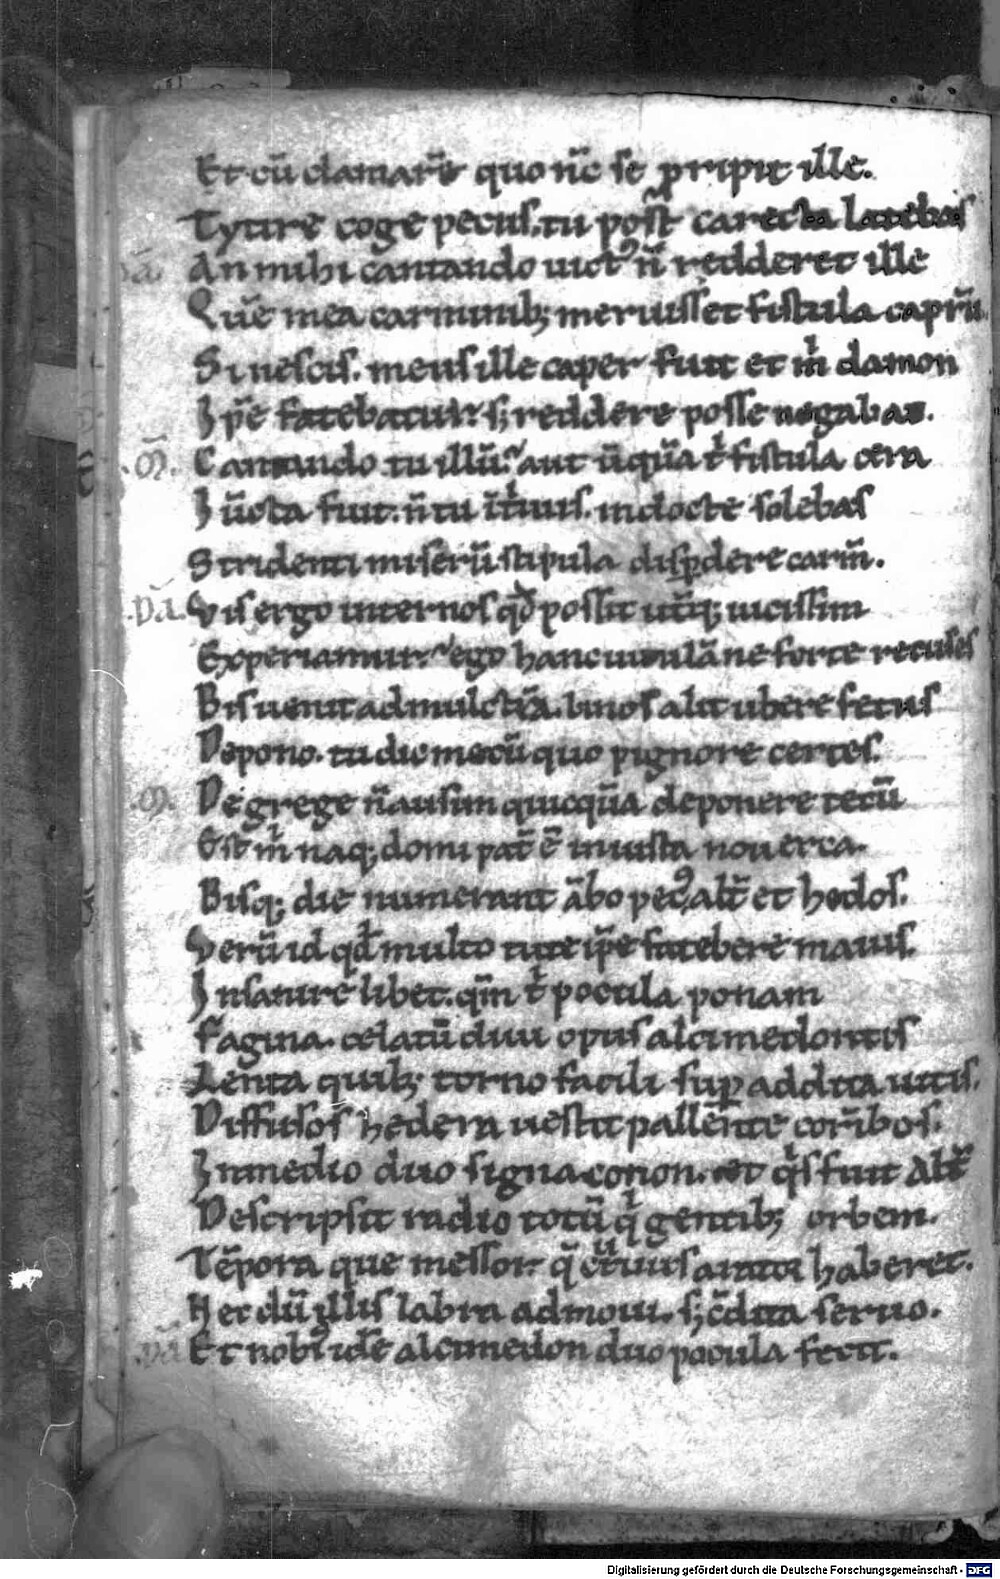 Et cū clamarē quo nc̄ se pripit ille.
Tytire coge pecus. tu post carecta latebas
Dā. An mihi cantando uict⁹ n̄ redderet ille
Quē mea carminib; meruisset fistula caprū
Si nescis. meus ille caper fuit et m̄ damon
Ipse fatebatur. s; reddere posse negabat.
.M̄. Cantando tu illū. aut ūquā t fistula cera
Iūcta fuit. n̄ tu in tiuiis. indocte solebas
Stridenti miserū stipula disꝑdere carm̄.
.Dā. Vis ergo inter nos qd possit utq; uicissim
Experiamur. ego hanc uitulā ne forte recuses
Bis uenit ad mulctrā. binos alit ubere fetus
Depono. tu dic mecū quo pignore certes.
.M̄. De grege n̄ ausim quicquā deponere tecū
Est m̄ naq; domi pat ē iniusta nouerca.
Bisq; die numerant ābo pec⁹ alt et hedos.
Verū id qd multo tute ipse fatebere maius.
Insanire libet. qm̄ t pocula ponam
Fagina. celatū diui opus alcimedontis
Lenta quib; torno facili suꝑ addita uitis.
Diffusos hedera uestit pallente corībos.
In medio duo signa conon. et qs fuit alt
Descripsit radio totū q gentib; orbem.
Tēpora que messor. q̄ curuus arator haberet.
Nec dū illis labra admoui. s; cōdita seruo.
Dā. Et nob idē alcimedon duo pocula fecit.
Digitalisierung gefördert durch die Deutsche Forschungsgemeinschaft - DFG